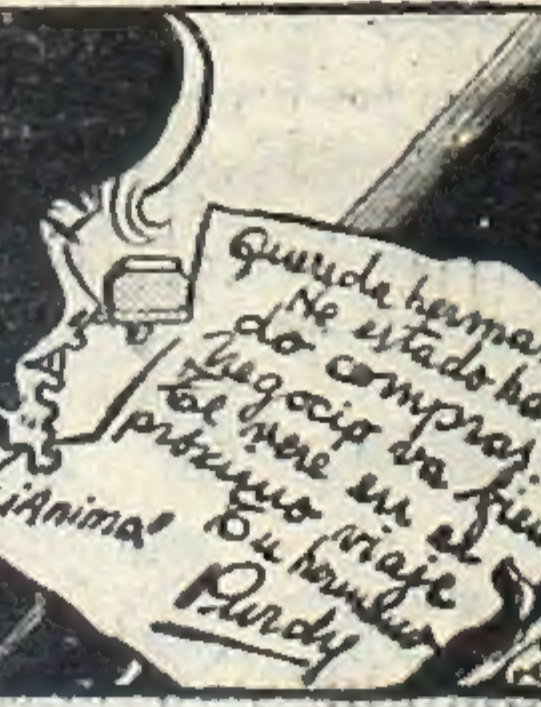 Querida herma
He estado ha
do compras.
negocio va bien
Te vere en el
próximo viaje
Tu hermano
Purdy
¡Anima!